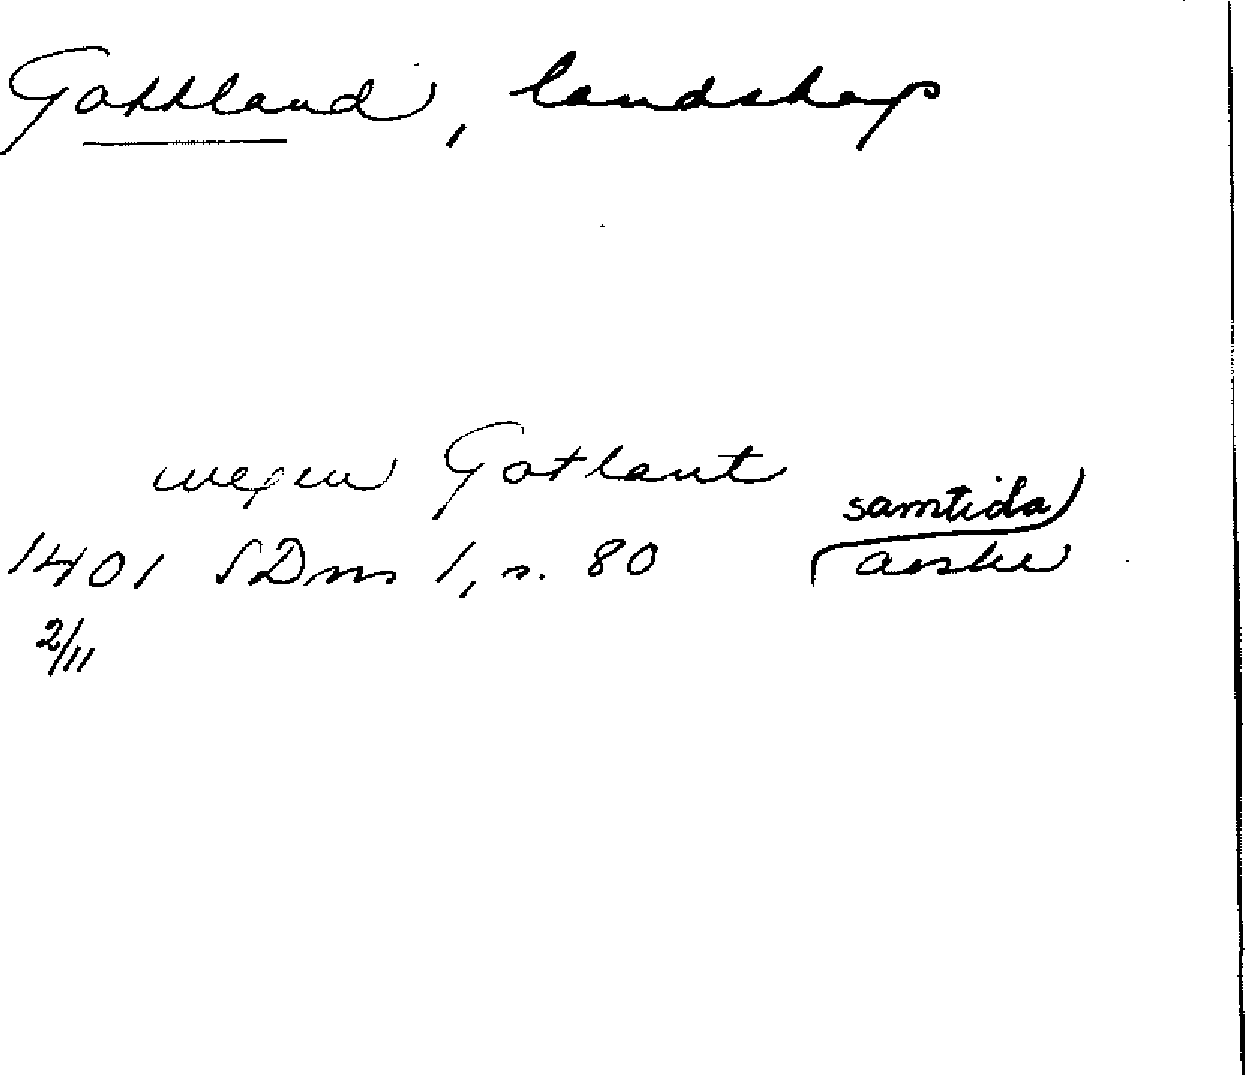 Gottland, landskap
wegen Gotlant
1401 SDns 1, s. 80 samtida avskr
2/11